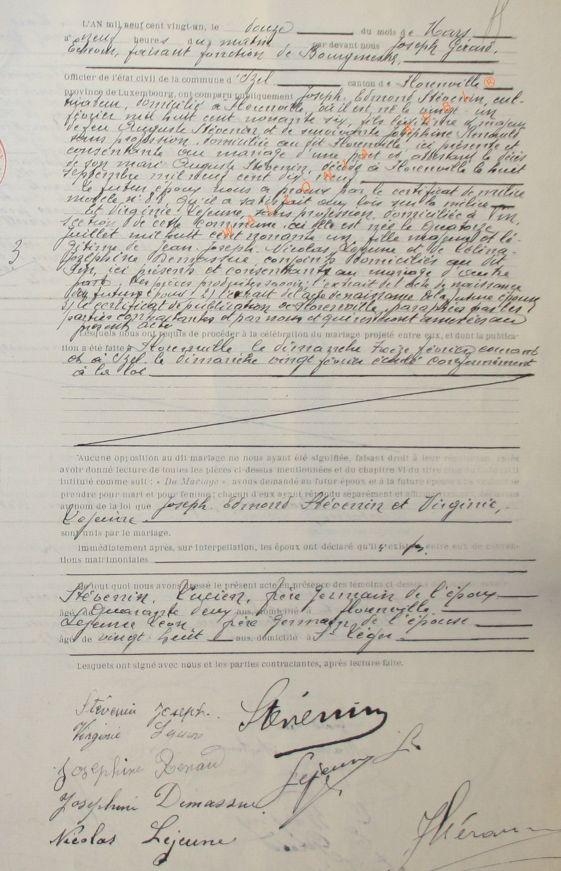 L'AN mil neuf cent vingt-un, le douze du mois de Mars
à neuf heures du matin par devant nous Joseph Gérard,
Echevin, faisant fonction de Bourgmestre,
Officier de l'état civil de la commune d'Izel canton de Florenville
province de Luxembourg, ont comparu publiquement Joseph, Edmond Stévenin, cul-
tivateur, domicilié à Florenville, où il est né le
février mil huit cent nonante six, fils majeur
de feu Auguste Stévenin et de survivante Joséphine Renauld
sans profession, domiciliée au dit Florenville, ici présente et
consentante au mariage d'une part et attestant le décès
de son mari Auguste Stévenin, décédé à Florenville le huit
septembre mil neuf cent six
Le futur époux nous a prouvé par le certificat de milice
modèle n° qu'il a satisfait aux lois sur la milice
Et Virginie Lejeune, sans profession, domiciliée à
section de cette commune, où elle est née le quatorze
juillet mil huit cent nonante un, fille majeure et lé-
gitime de Jean-Joseph-Nicolas Lejeune et de
Joséphine Demasque, conjoints domiciliés au dit
ici présents et consentants au mariage d'autre
part. Les pièces produites sont: 1) extrait de l'acte de naissance
du futur époux; 2) extrait de l'acte de naissance de la future épouse;
3) le certificat de publication de Florenville, paraphées par les
parties comparantes et par nous et qui seront annexées au
présent acte.
Lesquels nous ont requis de procéder à la célébration du mariage projeté entre eux, et dont la publica-
tion a été faite à Florenville le dimanche treize février courant
et à Izel le dimanche vingt février écoulé conformément
à la loi
Aucune opposition au dit mariage ne nous ayant été signifiée, faisant droit à leur réquisition, après
avoir donné lecture de toutes les pièces ci-dessus mentionnées et du chapitre VI du titre
intitulé comme suit : « Du Mariage », avons demandé au futur époux et à la future épouse
prendre pour mari et pour femme; chacun d'eux ayant répondu séparément et
au nom de la loi que Joseph Edmond Stévenin et Virginie,
Lejeune
sont unis par le mariage.
Immédiatement après, sur interpellation, les époux ont déclaré qu'il entre eux de conven-
tions matrimoniales
De tout quoi nous avons dressé le présent acte en présence des témoins ci-dessous
Stévenin, Lucien, frère germain de l'époux
âgé de quarante deux ans, domicilié à Florenville.
Lejeune Léon, frère germain de l'épouse
âgé de vingt huit ans, domicilié à St Léger
Lesquels ont signé avec nous et les parties contractantes, après lecture faite.
Stévenin Joseph. Stévenin
Virginie Lejeune
Joséphine Renaud Lejeune L.
Joséphine Nicolas Lejeune J Gérard